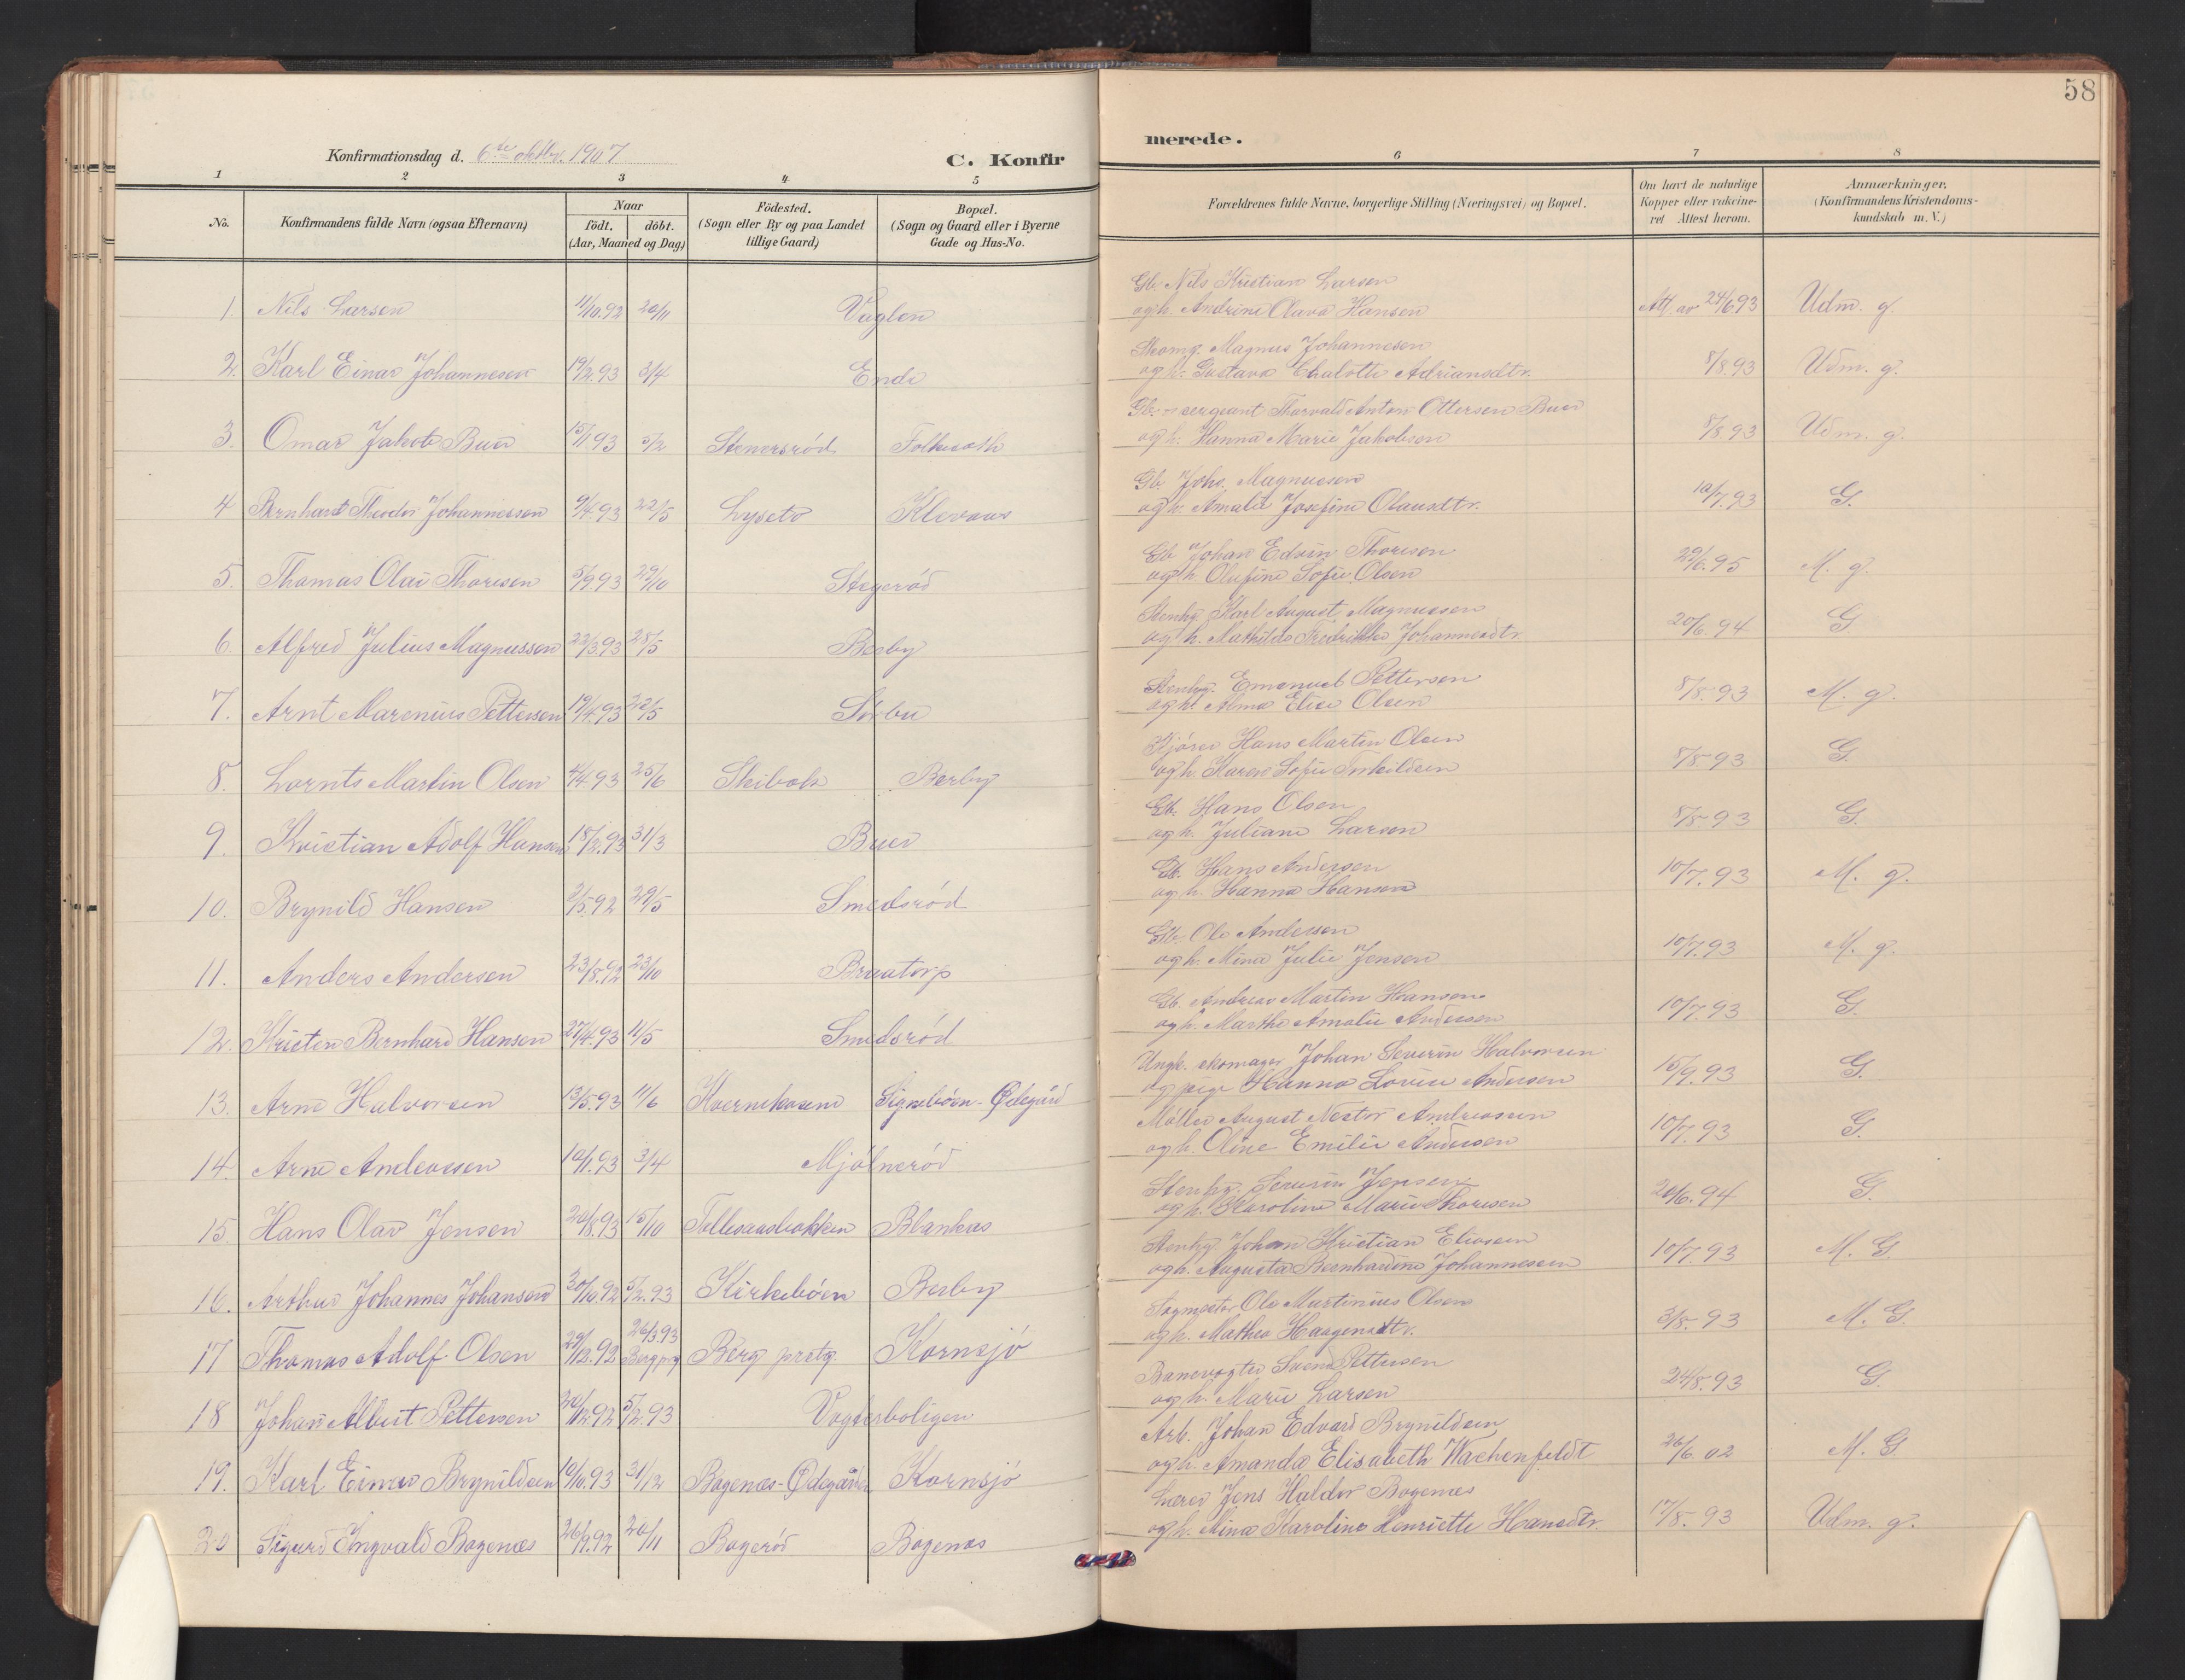 58
Konfirmationsdag d. 6te 1907
C. Konfir
merede.
1 2 3 4 5 6 7 8
No.
Konfirmandens fulde Navn (ogsaa Efternavn)
Naar
födt. döbt.
(Aar, Maaned og Dag)
Födested.
(Sogn eller By og paa Landet
tillige Gaard)
Bopæl.
(Sogn og Gaard eller i Byerne
Gade og Hus-No.
Forældrenes fulde Navne, borgerlige Stilling (Næringsvei) og Bopæl.
Om havt de naturlige
Kopper eller vakcine-
ret Attest herom.
Anmærkninger.
(Konfirmandens Kristendoms-
kundskab m. V.)
Gb. Nils Kristian Larsen
1 Nils Larsen 11/10.92 20/11 Vaglen og h. Andrine Olava Hansen Att. av 24/6 93 Udm. g.
Magnus Johannesen
2. Karl Einar Johannesen 19/2.93 3/4 Ende og h. Gustava Chalotte Adriansdtr. 8/8.93 Udm. g.
Gb. sergeant Thorvald Anton Ottersen Buer
3. Omar Jakob Buer 15/1 93 5/2 Stenersröd og h. Hanna Marie Jakobsen 8/8.93 Udm. g.
Gb. Johs. Magnussen
4 Bernhard Theodor Johannessen 9/4.93 22/5 Lyseto Klevaas og h. Amalie Josefine Olausdtr. 10/7.93 G.
Gb. Johan Edvin Thoresen
5. Thomas Olai Thoresen 5/9.93 29/10 Stegeröd og h. Olufine Sofie Olsen 29/6.95 M. g.
Stenhg. Karl August Magnussen
6. Alfred Julius Magnussen 22/3.93 28/5 Berby og h. Mathilde Fredrikke Johannesdtr. 20/6.94 G
Stenhg. Emanuel Pettersen
7. Arnt Marenius Pettersen 19/4.93 22/5 Sörbu og h. Alma Elise Olsen 8/8.93 M. g.
Kjörer Hans Martin Olsen
8. Lornts Martin Olsen 4/4.93 25/6 Skibak Berby og h. Karen Sofie 8/8 93 G.
Gb. Hans Olsen
9. Kristian Adolf Hansen 18/2.93 31/3 Buer og h. Juliane Larsen 8/8 93 G.
Gb. Hans Andersen
10. Brynild Hansen 2/5.92 29/5 Smedsröd og h. Hanna Hansen 10/7.93 M. g.
Gb. Ole Andersen
11. Anders Andersen 23/8.92 23/10 Bruatorp og h. Mina Julie Jensen 10/7.93 M. g.
Gb. Andreas Martin Hansen
12. Kristen Bernhard Hansen 27/4.93 11/5 Smedsröd og h. Marthe Amalie Andersen 10/7.93 G.
Ungk. skomager Johan Severin Halvorsen
13. Arne Halvorsen 13/5.93 11/6 Signeböen-Ødegård og pige Hanna Lovise Andersen 15/9.93 G.
Möller August Nestor Andreassen
14. Arne Andreassen 10/1.93 3/4 Mjölneröd og h. Oline Emilie Andersen 10/7.93 G.
Stenhg. Severin Jensen
15. Hans Olav Jensen 20/8.93 15/10 Blankas og h. Karoline Marie Thoresen 20/6.94 G.
Stenhg. Johan Kristian Eliasen
16. Arthur Johannes Johansen 30/10.92 5/2.93 Kirkeböen Berby og h. Augusta Bernhardine Johannesen 10/7.93 M. G
Sagmester Ole Martinius Olsen
17 Thomas Adolf Olsen 29/12.92 26/3.93 Berg prg Berg prstg. Kornsjö og h. Mathea Haagensdtr. 3/8.93 M. G.
Banevogter Svend Pettersen
18 Johan Albert Pettersen 20/12.92 5/2.93 Vogterboligen og h. Marie Larsen 24/8.93 G.
Arb. Johan Edvard Brynildsen
19. Karl Einar Brynildsen 10/10.93 31/12 Bagenæs-Ødegården Kornsjö og h. Amanda Elisabeth Wachenfeldt 26/6.02 M. G
Lærer Jens Haldor Bagenæs
20 Sigurd Ingvald Bagenæs 26/9.92 20/11 Bageröd Bagenæs og h. Mina Karoline Henriette Hansdtr. 17/8.93 Udm. g.